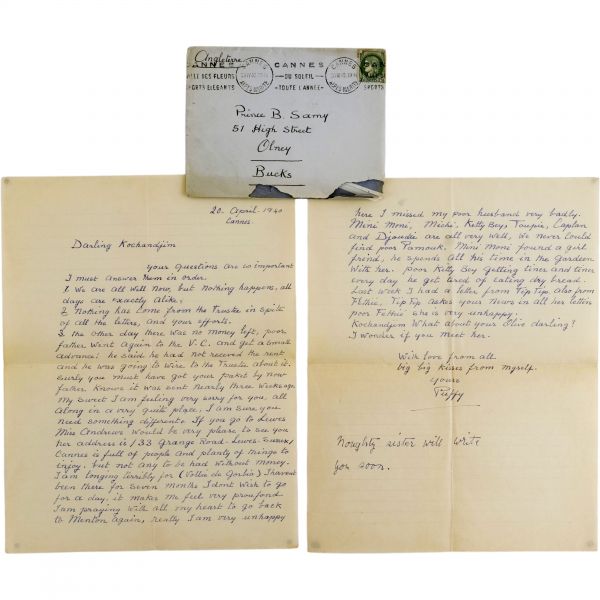 Angleterre
CANNES
VILLE DES FLEURS
SPORTS ELEGANTS
CANNES
ALPES MARITIMES
CANNES
—DU SOLEIL—
—TOUTE L'ANNÉE—
CANNES
ALPES MARITIMES
SPORTS
Prince B. Samy
51 High Street
Olney
Bucks
20. April. 1940
Cannes.
Darling Kochandjim
your questions are so important
I must answer them in order.
1. We are All Well Now, but Nothing happens, all
days are exactly Alike,
2 Nothing has come from the Trustee in Spite
of all the letters, and your efforts.
3. the other day there was no money left, poor
father Went Again to the V.C. and get a small
advance. he said he had not received the rent
and he was going to Wire, to the Trustee about it.
Surly you must have got your parsb by now
father Knows it was sent nearly three weeks ago.
My sweet I am feeling very sorry for you, all
Along in a very quite place, I am sure you
need something different. If you go to Lewes
Miss Andrews Would be very please to see you
her address is /33 Grange Road. Lewes. Sussex/
Cannes is full of people and planty of things to
enjoy, but not any to be had without money.
I am longing terribly for (Vallie de Gorbio) I havent
been there for seven months I dont wish to go
for a day, it makes me feel very proufond
I am praying with all my heart to go back
to Menton again, really I am very unhappy
here I missed my poor husband very badly.
Mini Moni, Michi, Ketty Bey, Toupie, Captan
and Djaudie are all very well, We never Could
find poor Pamouk. Mini Moni found a girl
friend, he spends All his time in the Gardeen
With her. poor Ketty Bey getting tiner and tiner
every day he get tired of eating dry bread.
Last Week I had a letter from Tip Tip also from
Fethie, Tip Tip Askes your News in all her letters
poor Fethie she is very unhappy.
Kochandjim What about your Olive darling?
I wonder if you meet her.
With love from all.
big big kisses from myself.
yours
Piffy
Noughty sister will write
you soon.